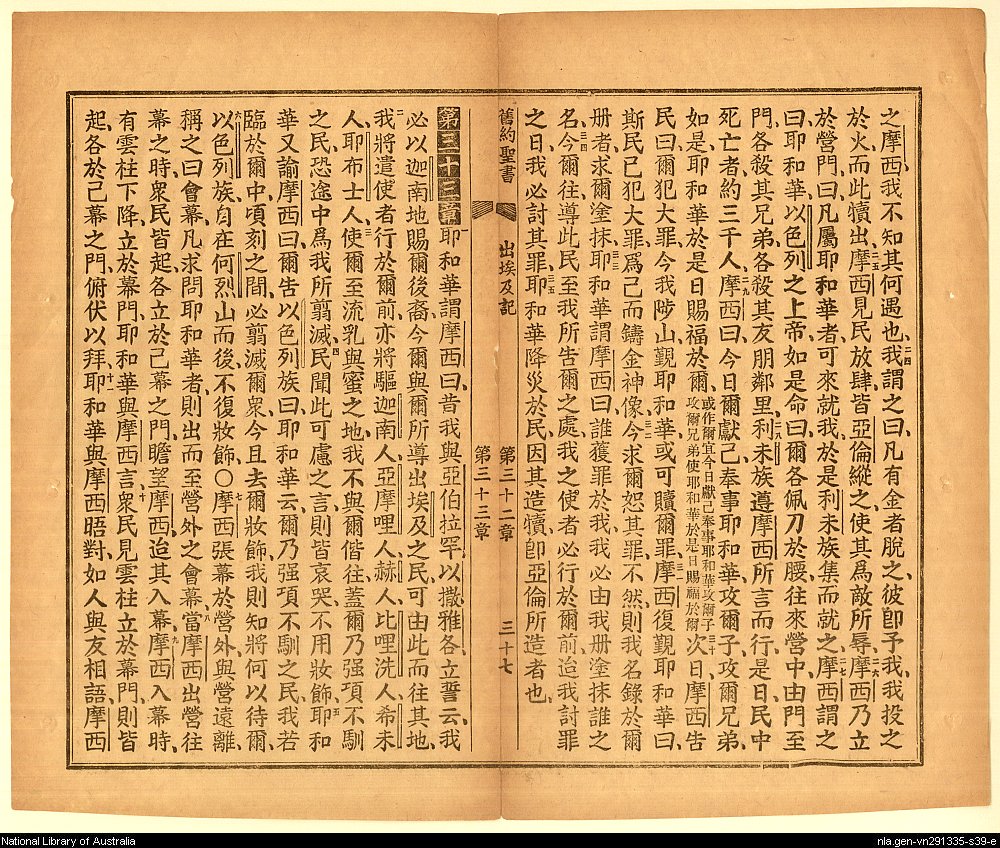 之摩西我不知其何遇也我謂之曰凡有金者脫之彼卽予我我投之
於火而此犢出摩西見民放肆皆亞倫縱之使其爲敵所辱摩西乃立
於營門曰凡屬耶和華者可來就我於是利未族集而就之摩西謂之
曰耶和華以色列之上帝如是命曰爾各佩刀於腰往來營中由門至
門各殺其兄弟各殺其友朋鄰里利未族遵摩西所言而行是日民中
死亡者約三千人摩西曰今日爾獻己奉事耶和華攻爾子攻爾兄弟
如是耶和華於是日賜福於爾或作爾宜今日獻己奉事耶和華攻爾子攻爾兄弟使耶和華於是日賜福於爾次日摩西告
民曰爾犯大罪今我陟山覲耶和華或可贖爾民罪摩西復覲耶和華曰
斯民已犯大罪爲己而鑄金神像今求爾恕其罪不然則我名錄於爾
册者求爾塗抹耶和華謂摩西曰誰獲罪於我我必由我册塗抹誰之
名今爾往導此民至我所告爾之處我之使者必行於爾前迨我討罪
之日我必討其罪耶和華降災於民因其造犢卽亞倫所造者也
舊約聖書 出埃及記 第三十二章 三十七
第三十三章
第三十三章耶和華謂摩西曰昔我與亞伯拉罕以撒雅各立誓云我
必以迦南地賜爾後裔今爾與爾所導出埃及之民可由此而往其地
我將遣使者行於爾前亦將驅迦南人亞摩哩人赫人比哩洗人希未
人耶布士人使爾至流乳與蜜之地我不與爾偕往蓋爾乃强項不馴
之民恐途中爲我所翦滅民聞此可慮之言則皆哀哭不用妝飾耶和
華又諭摩西曰爾告以色列族曰耶和華云爾乃强項不馴之民我若
臨於爾中頃刻之間必翦滅爾衆今且去爾妝飾我則知將何以待爾
以色列族自在何烈山而後不復妝飾〇摩西張幕於營外與營遠離
稱之曰會幕凡求問耶和華者則出而至營外之會幕當摩西出營往
幕之時衆民皆起各立於己幕之門瞻望摩西迨其入幕摩西入幕時
有雲柱下降立於幕門耶和華與摩西言衆民見雲柱立於幕門則皆
起各於己幕之門俯伏以拜耶和華與摩西晤對如人與友相語摩西
National Library of Australia
nla.gen-vn291335-s39-e